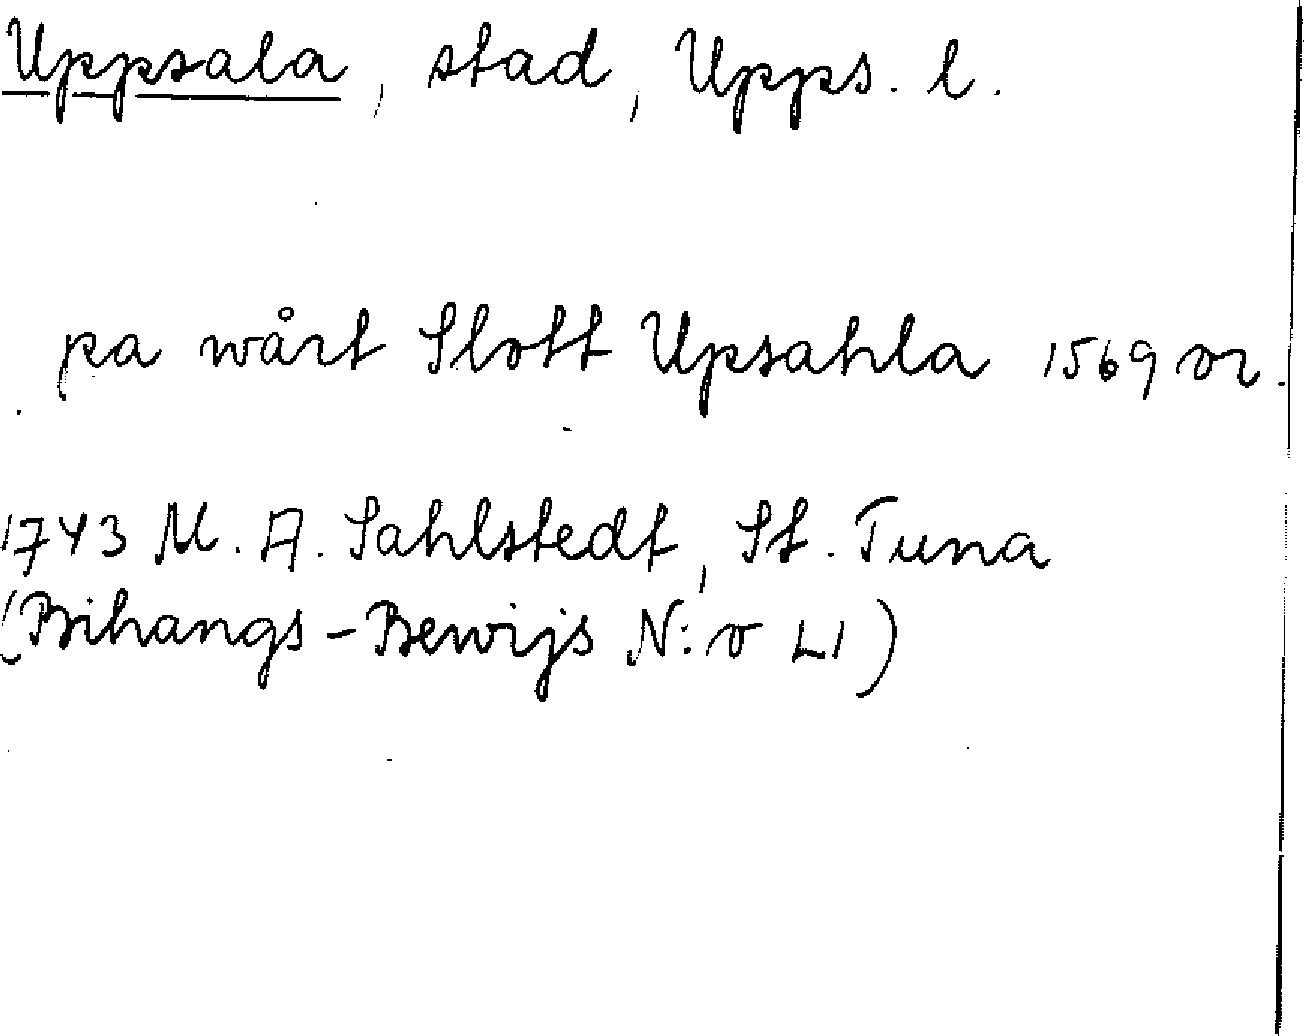 Uppsala, stad, Upps. l.
pa wårt Slott Upsahla 1569 or.
1743 M. A. Sahlstedt, St. Tuna
(Bihangs-Bewijs N:o LI)